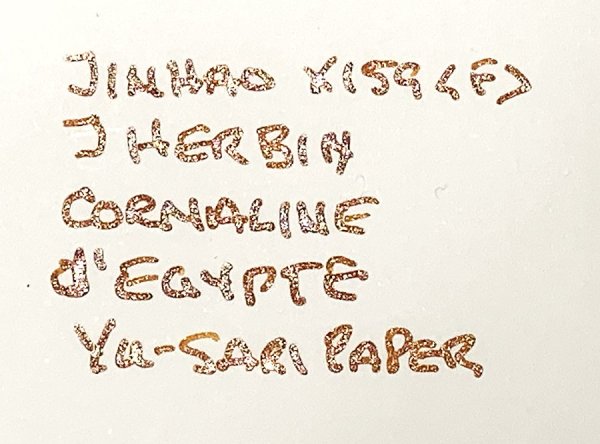 JINHAO X159 (F)
J HERBIN
CORNALINE
d'EGYPTE
YU-SARI PAPER